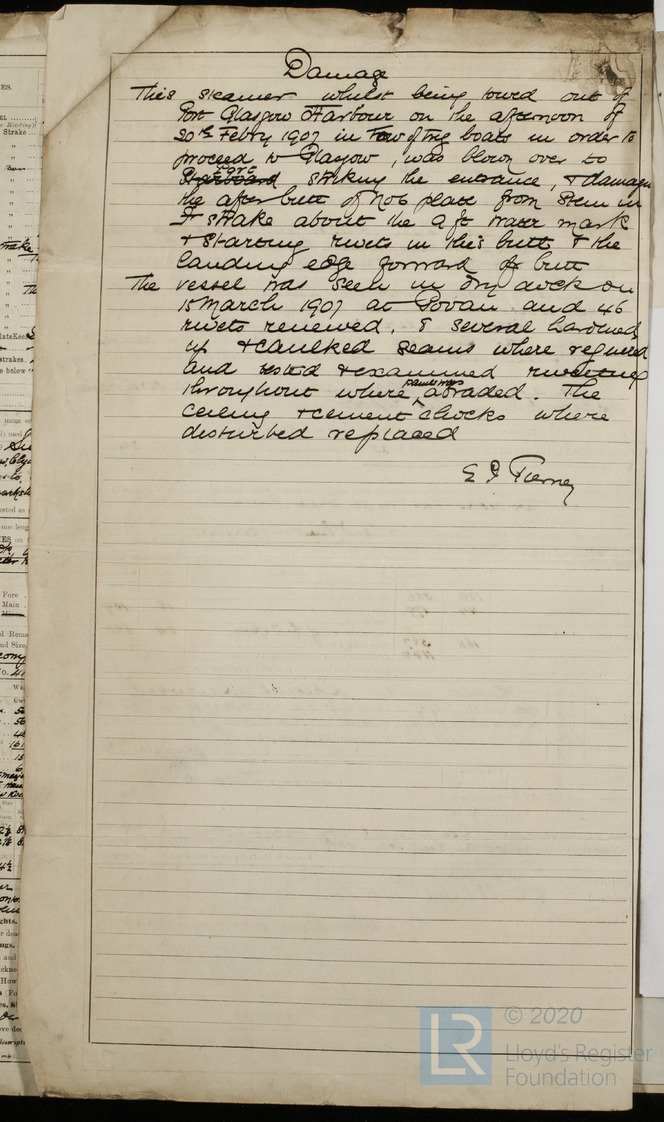 Damage
This steamer whilst being towed out of
Port Glasgow Harbour on the afternoon of
20th Febry 1907 in tow of tug boats in order to
proceed to Glasgow, was blown over to
Port
Starboard striking the entrance, & damag
the after butt of No 6 plate from stem in
F strake about the 9 ft water mark
& starting rivets in this butt & the
landing edge forward of butt
The vessel was seen in dry dock on
15 March 1907 at Govan and 46
rivets renewed, & several hardened
up & caulked seams where required
and tested & examined riveting
throughout where abraded. The
ceiling & cement chocks where
disturbed replaced
E J Tierney
LR
© 2020
Lloyd's Register
Foundation